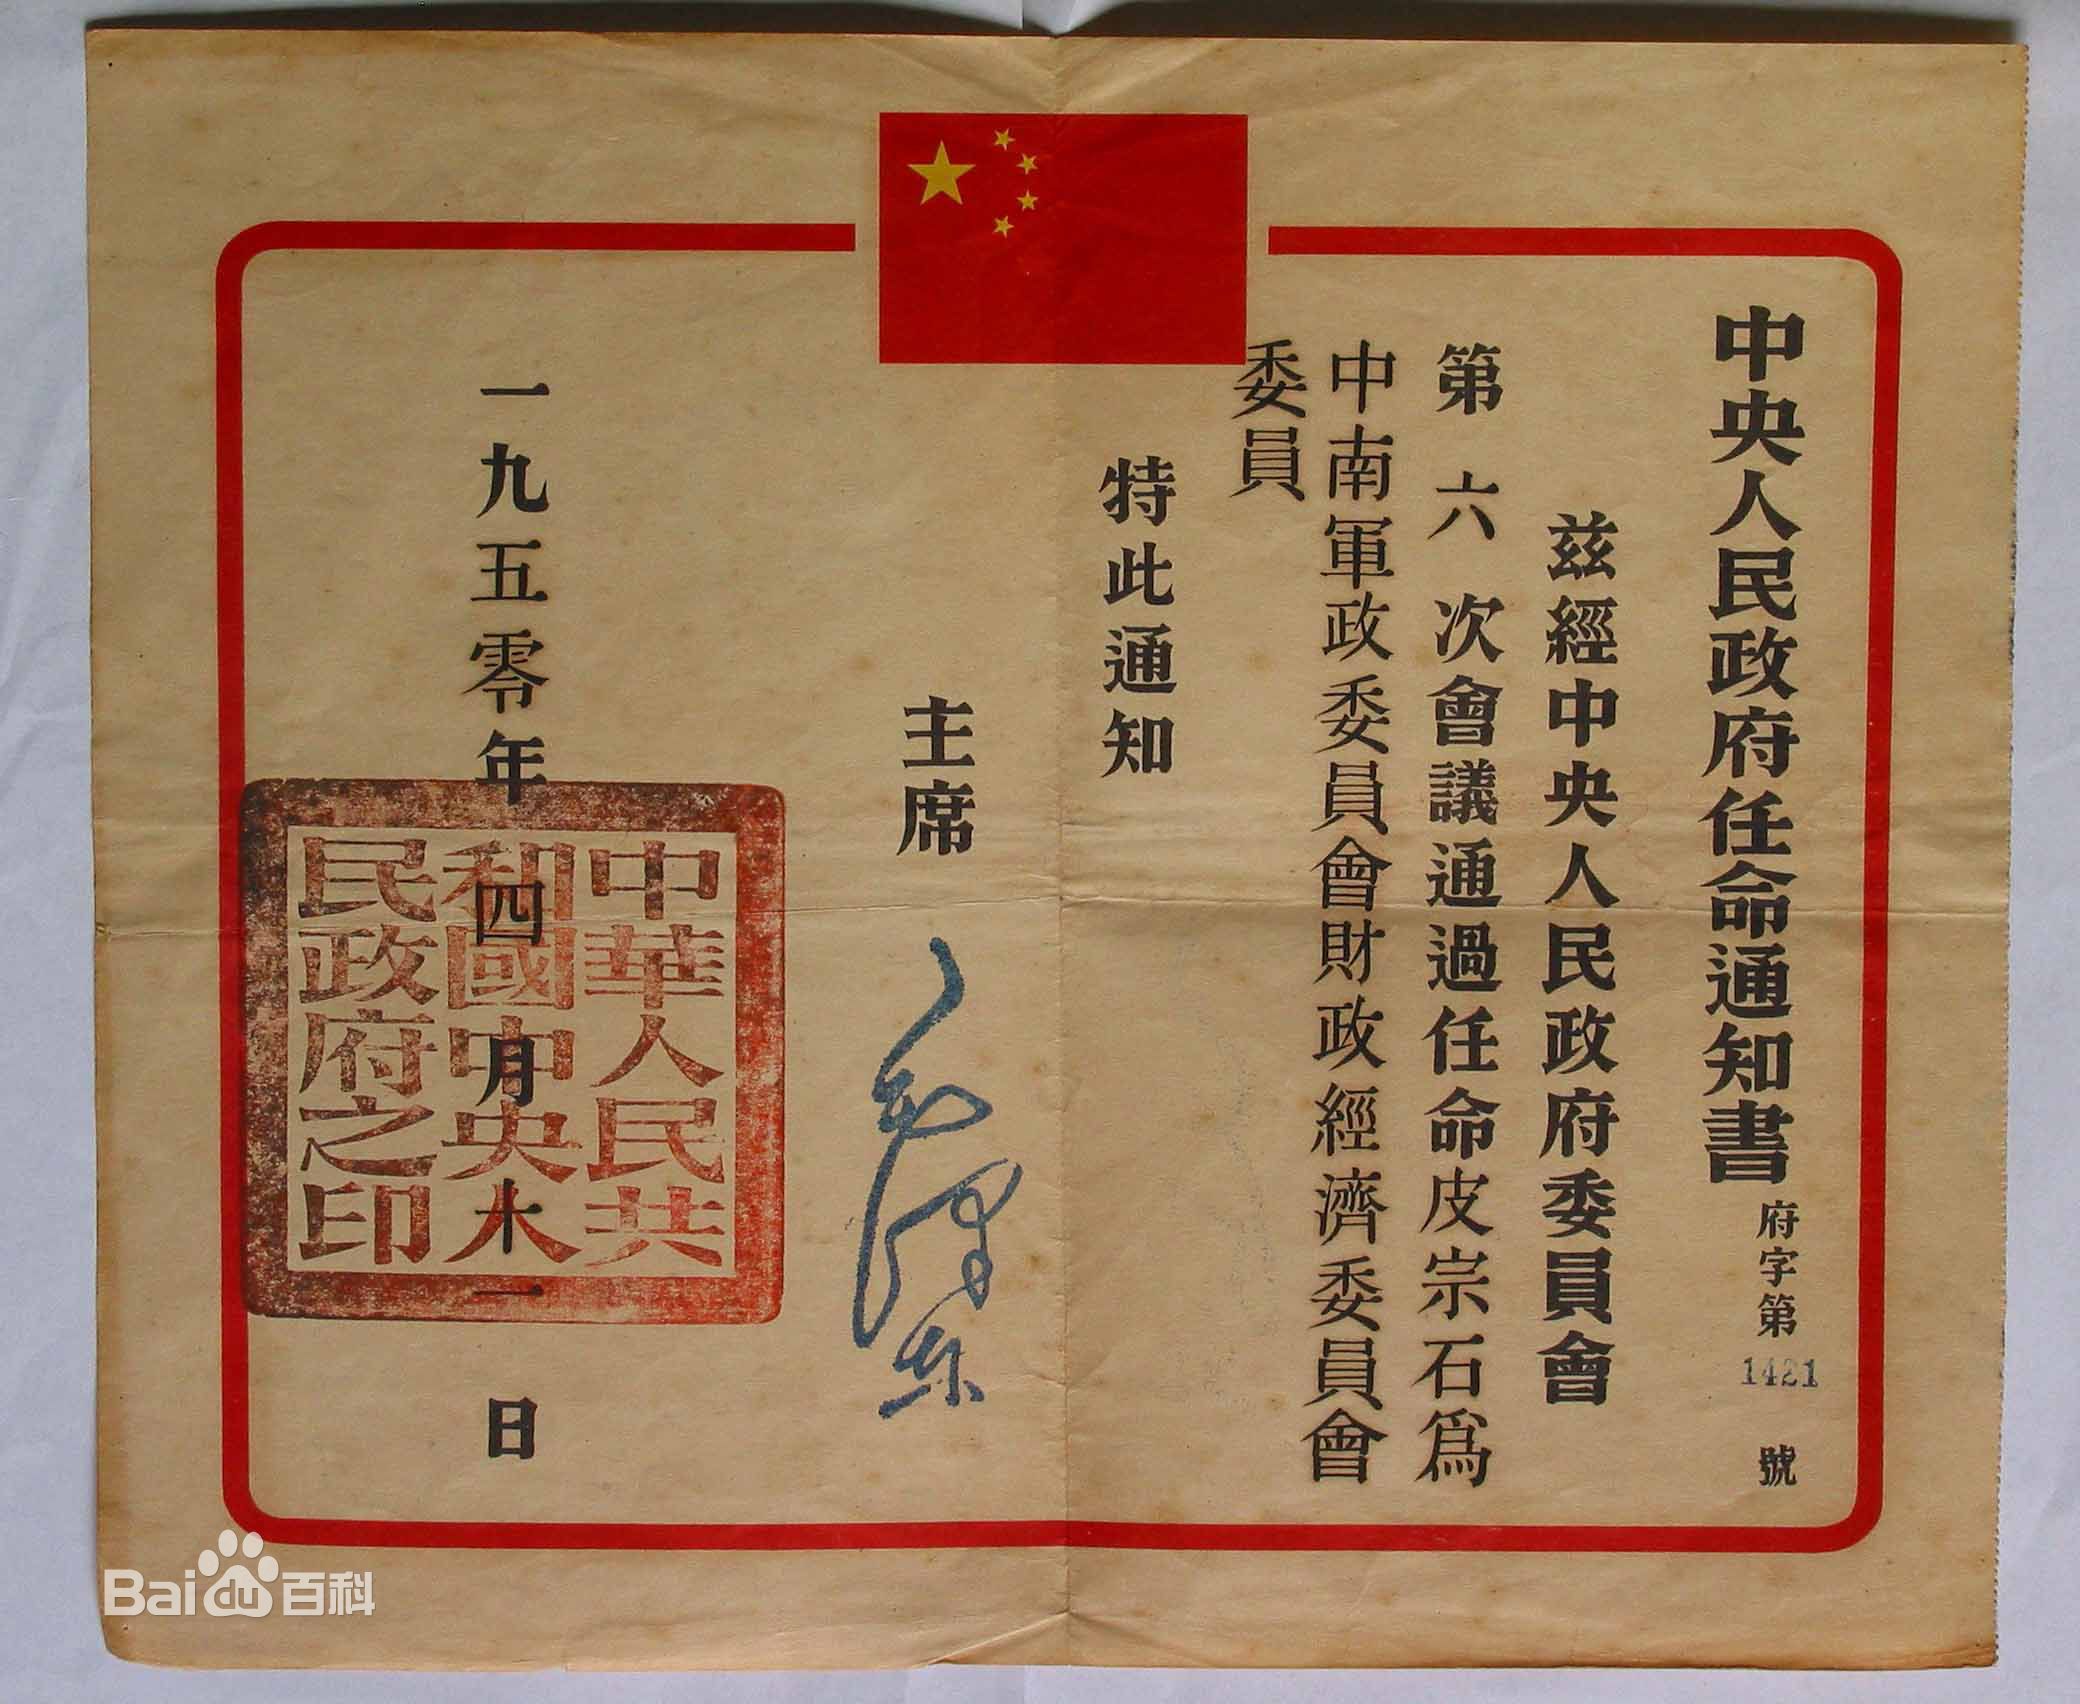 中央人民政府任命通知書
府字第1421號
兹經中央人民政府委員會
第六次會議通過任命皮宗石爲
中南軍政委員會財政經濟委員會
委員
特此通知
主席
毛澤东
一九五零年四月十一日
中華人民共
和國中央人
民政府之印
Bai百科